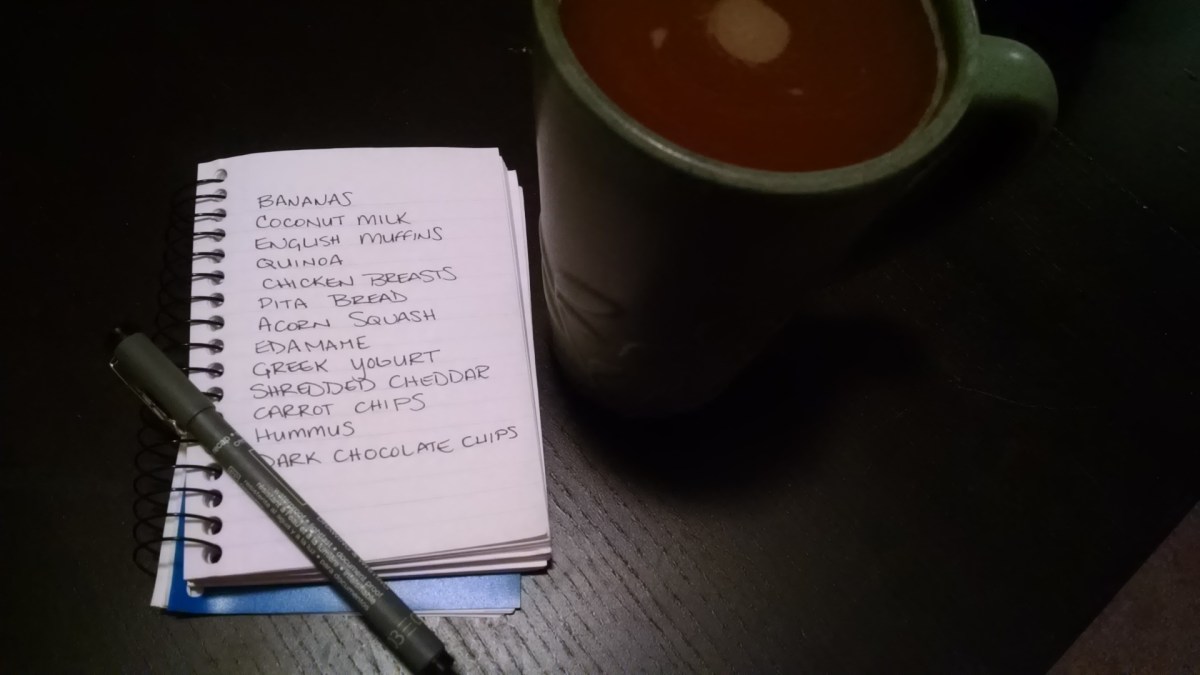 BANANAS
COCONUT MILK
ENGLISH MUFFINS
QUINOA
CHICKEN BREASTS
PITA BREAD
ACORN SQUASH
EDAMAME
GREEK YOGURT
SHREDDED CHEDDAR
CARROT CHIPS
HUMMUS
DARK CHOCOLATE CHIPS